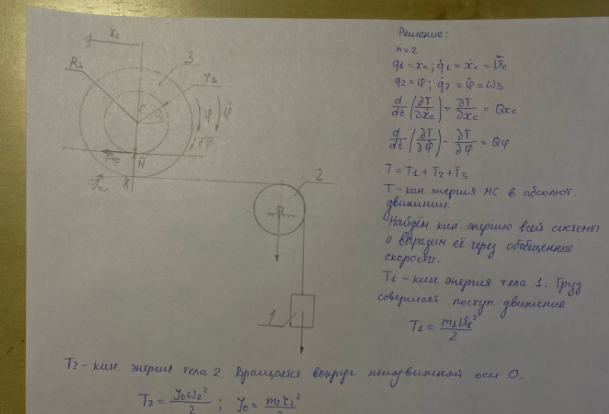 x_c
R_3
3
r_2
C
φ
φ̇
F_тр
N̄
K
2
1
Решение:
n=2
q_1 = x_c; q̇_1 = ẋ_c = V_c
q_2 = φ; q̇_2 = φ̇ = ω_3
d/dt (∂T/∂ẋ_c) - ∂T/∂x_c = Q_xc
d/dt (∂T/∂φ̇) - ∂T/∂φ = Q_φ
T = T_1 + T_2 + T_3
T - кин. энергия МС в абсолют.
движении.
Найдём кин. энергию всей системы
и выразим её через обобщенные
скорости.
T_1 - кин. энергия тела 1. Груз
совершает поступ. движение
T_1 = m_1 V_1^2 / 2
T_2 - кин. энергия тела 2. Вращается вокруг неподвижной оси O.
T_2 = J_0 ω_2^2 / 2 ; J_0 = m_2 r_2^2